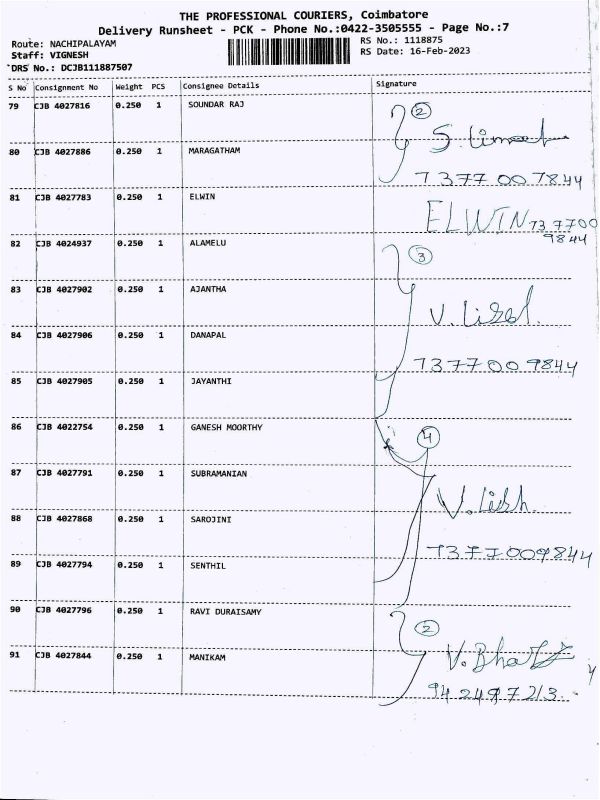 THE PROFESSIONAL COURIERS, Coimbatore
Delivery Runsheet - PCK - Phone No.:0422-3505555 - Page No.:7
Route: NACHIPALAYAM
RS No.: 1118875
Staff: VIGNESH
RS Date: 16-Feb-2023
DRS No.: DCJB111887507
S No Consignment No Weight PCS Consignee Details Signature
79 CJB 4027816 0.250 1 SOUNDAR RAJ
2
S.
80 CJB 4027886 0.250 1 MARAGATHAM
7377007844
81 CJB 4027783 0.250 1 ELWIN
ELWIN 737700
9844
82 CJB 4024937 0.250 1 ALAMELU
3
83 CJB 4027902 0.250 1 AJANTHA
V.
84 CJB 4027906 0.250 1 DANAPAL
7377009844
85 CJB 4027905 0.250 1 JAYANTHI
86 CJB 4022754 0.250 1 GANESH MOORTHY
4
87 CJB 4027791 0.250 1 SUBRAMANIAN
V.
88 CJB 4027868 0.250 1 SAROJINI
7377009844
89 CJB 4027794 0.250 1 SENTHIL
90 CJB 4027796 0.250 1 RAVI DURAISAMY
2
91 CJB 4027844 0.250 1 MANIKAM
V.